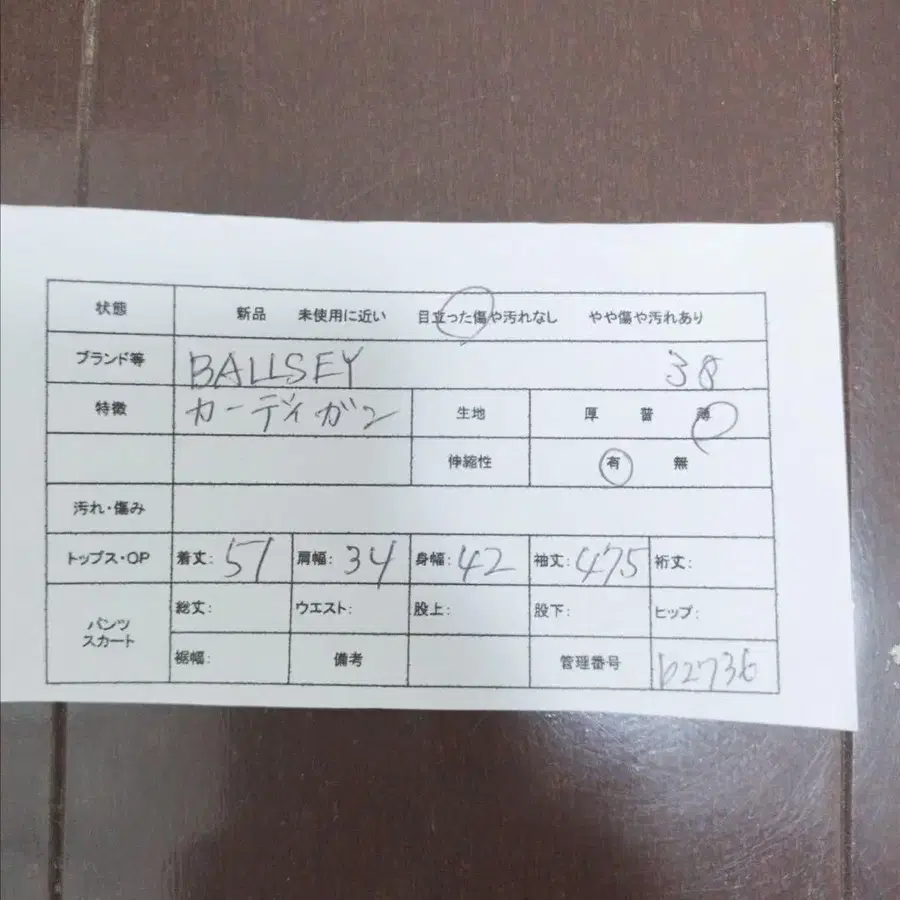 状態 新品 未使用に近い 目立った傷や汚れなし やや傷や汚れあり
ブランド等 BALLSEY 38
特徴 カーディガン 生地 厚 普 薄
伸縮性 有 無
汚れ・傷み
トップス・OP 着丈: 51 肩幅: 34 身幅: 42 袖丈: 475 裄丈:
パンツ スカート 総丈: ウエスト: 股上: 股下: ヒップ:
裾幅: 備考 管理番号 b2736